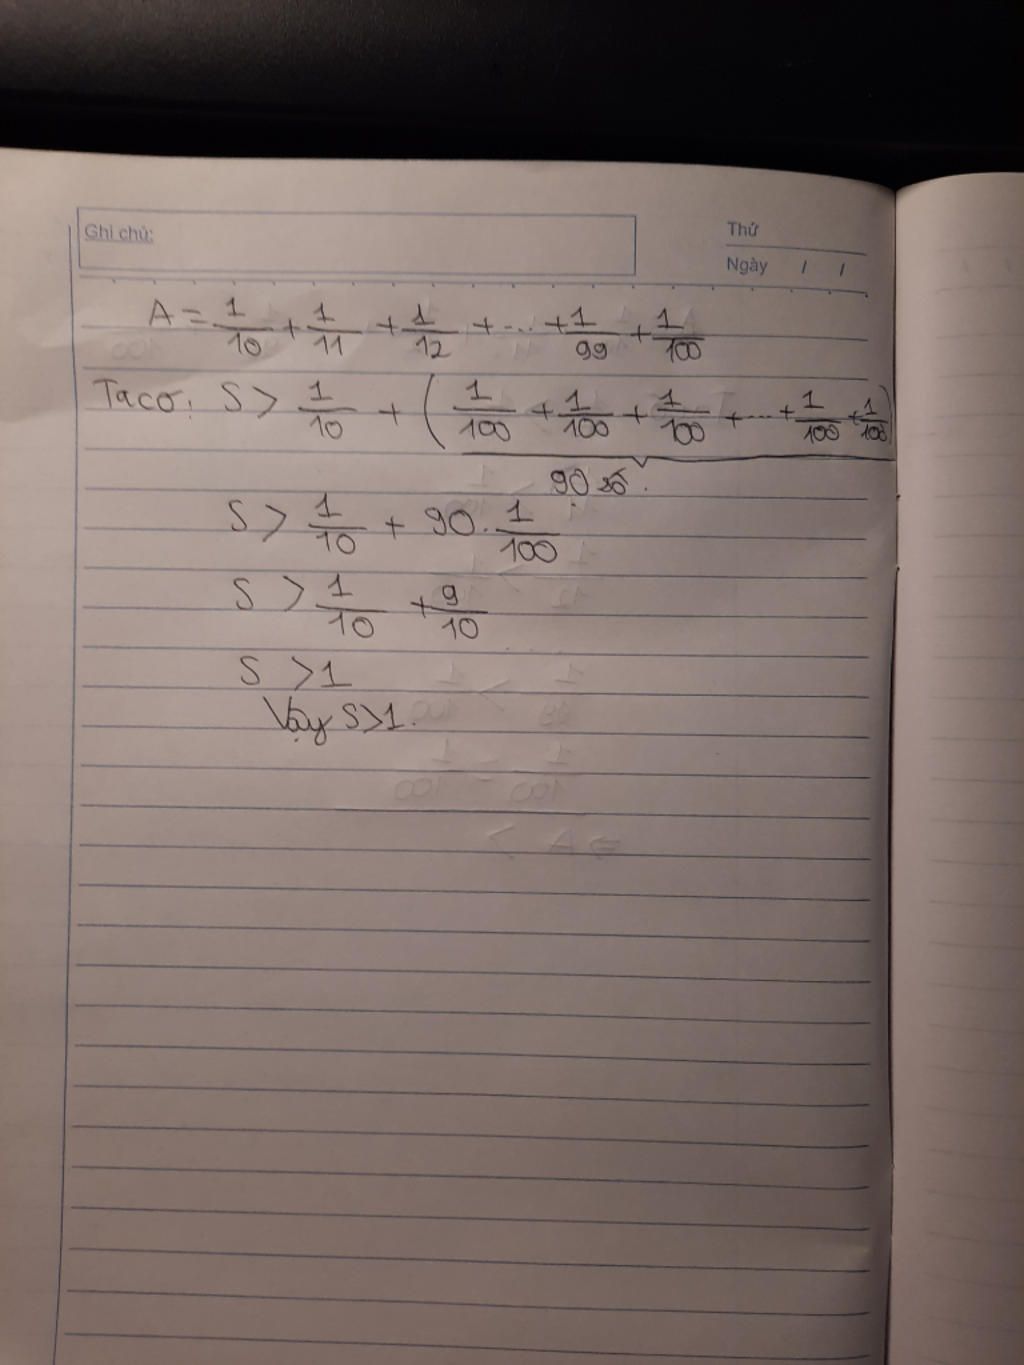 Ghi chú:
Thứ
Ngày / /
A = 1/10 + 1/11 + 1/12 + ... + 1/99 + 1/100
Ta có: S > 1/10 + (1/100 + 1/100 + 1/100 + ... + 1/100 + 1/100)
90 số.
S > 1/10 + 90 . 1/100
S > 1/10 + 9/10
S > 1
Vậy S > 1.